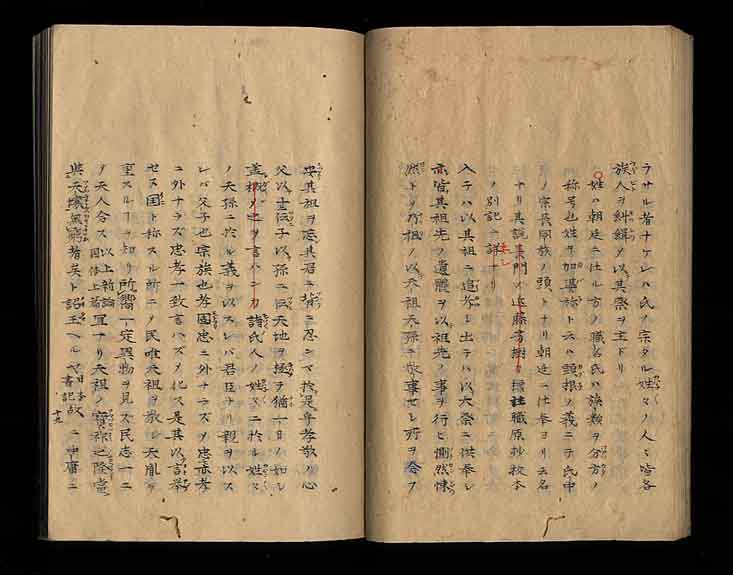 ラサル者ナケレハ氏ノ宗タル姓々ノ人々皆各
族人ヲ糾緝メ以其祭ヲ主トリ
姓ハ朝廷ニ仕ル方ノ職名氏ハ族類ヲ分方ノ
称号也姓ヲ加婆祢ト云ハ頭根ノ義ニテ氏中
ノ宗長同族ノ頭トナリ朝廷ニ仕奉ヨリ云名
ナリ其説 門ノ近藤芳樹カ標註職原抄校本
ノ別記ニ詳ナリ
入テハ以其祖ニ追孝シ出テハ以大祭ニ供奉シ
亦皆其祖先ノ遺 ヲ以祖先ノ事ヲ行ヒ惻然悚
然トノ乃祖ノ以天祖天孫ニ敬事セシ所ヲ念フ
其祖ヲ忘其君ニ 忍シマ於是乎孝敬ノ心
父以 子以孫ニ 天地ヲ極ヲ猶一日ノ如シ
蓋 之ヲ言ハンカ諸氏人ノ姓々ニ於ル姓々
ノ天孫ニ於ル義ヲ以スレバ君臣ナリ親ヲ以ス
レバ父子也宗族也孝固忠ニ外ナラズヲ忠亦孝
ニ外ナラズ忠孝一致言ハズメ化ス是其以言挙
セヌ国ト称スル所ニノ民唯天祖ヲ敬シ天胤ヲ
奉スルヿヲ知リ所嚮一定異物ヲ見ス民志一ニ
ノ天人合ス以上新論国体上篇宜ナリ天祖ノ宝祚之隆当
与天壌無窮者矣ト詔玉ヘルヤ日本書記故ニ中庸ニ
十九